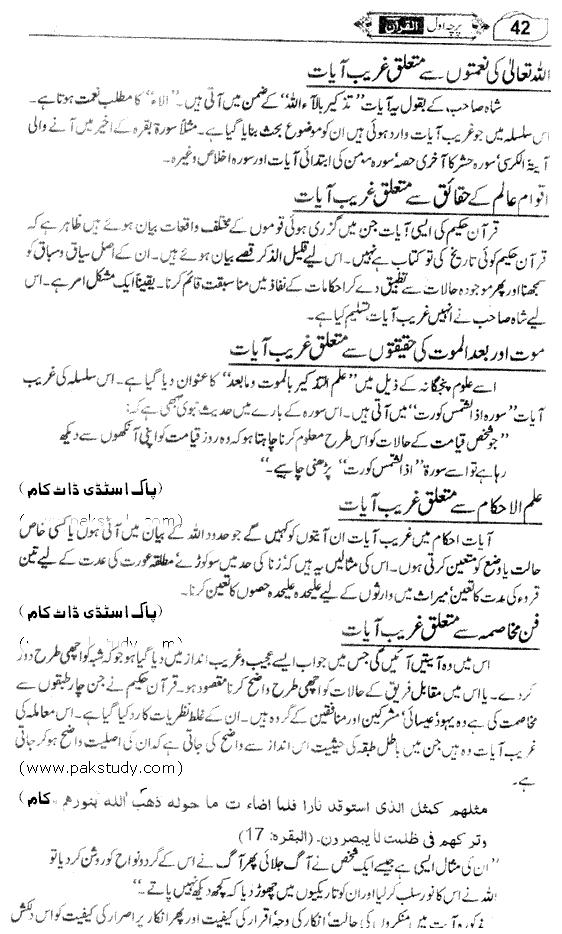 42 پرچہ اول القرآن
اللہ تعالیٰ کی نعمتوں سے متعلق غریب آیات
شاہ صاحب کے بقول یہ آیات ”تذکیر بالآء اللہ“ کے ضمن میں آتی ہیں۔ ”الاء“ کا مطلب نعمت ہوتا ہے۔
اس سلسلہ میں جو غریب آیات وارد ہوئی ہیں ان کو موضوع بحث بنایا گیا ہے۔ مثلاً سورۃ بقرہ کے اخیر میں آنے والی
آیۃ الکرسی‘ سورہ حشر کا آخری حصہ‘ سورہ مومن کی ابتدائی آیات اور سورہ اخلاص وغیرہ۔
اقوام عالم کے حقائق سے متعلق غریب آیات
قرآن حکیم کی ایسی آیات جن میں گزری ہوئی قوموں کے مختلف واقعات بیان ہوئے ہیں ظاہر ہے کہ
قرآن حکیم کوئی تاریخ کی تو کتاب ہے نہیں۔ اس لیے قلیل الذکر قصے بیان ہوئے ہیں۔ ان کے اصل سیاق و سباق کو
سمجھنا اور پھر موجودہ حالات سے تطبیق دے کر احکامات کے نفاذ میں مناسبقت قائم کرنا۔ یقیناً ایک مشکل امر ہے۔ اس
لیے شاہ صاحب نے انہیں غریب آیات تسلیم کیا ہے۔
موت اور بعد الموت کی حقیقتوں سے متعلق غریب آیات
اسے علوم پنجگانہ کے ذیل میں ”علم التذکیر بالموت وما بعد“ کا عنوان دیا گیا ہے۔ اس سلسلہ کی غریب
آیات ”سورہ اذا الشمس کورت“ میں آتی ہیں۔ اس سورہ کے بارے میں حدیث نبوی بھی ہے کہ:
”جو شخص قیامت کے حالات کو اس طرح معلوم کرنا چاہتا ہو کہ وہ روز قیامت کو اپنی آنکھوں سے دیکھ
رہا ہے تو اسے سورۃ ”اذا الشمس کورت“ پڑھنی چاہیے۔“
(پاک اسٹڈی ڈاٹ کام)
علم الاحکام سے متعلق غریب آیات
(www.pakstudy.com)
آیات احکام میں غریب آیات ان آیتوں کو کہیں گے جو حدود اللہ کے بیان میں آئی ہوں یا کسی خاص
حالت یا وضع کو متعین کرتی ہوں۔ اس کی مثالیں یہ ہیں کہ زنا کی حد میں سو کوڑے‘ مطلقہ عورت کی عدت کے لیے تین
قروء کی مدت کا تعین‘ میراث میں وارثوں کے لیے علیحدہ علیحدہ حصوں کا تعین کرنا۔
(پاک اسٹڈی ڈاٹ کام)
فن مخاصمہ سے متعلق غریب آیات
(www.pakstudy.com)
اس میں وہ آیتیں آئیں گی جس میں جواب ایسے عجیب و غریب انداز میں دیا گیا ہو جو کہ شبہ کو اچھی طرح دور
کر دے۔ یا اس میں مقابل فریق کے حالات کو اچھی طرح واضح کرنا مقصود ہو۔ قرآن حکیم نے جن چار طبقوں سے
مخاصمت کی ہے وہ یہود‘ عیسائی‘ مشرکین اور منافقین کے گروہ ہیں۔ ان کے غلط نظریات کا رد کیا گیا ہے۔ اس معاملہ کی
غریب آیات وہ ہیں جن میں باطل طبقہ کی حیثیت اس انداز سے واضح کی جاتی ہے کہ ان کی اصلیت واضح ہو کر جاتی
ہے۔
(www.pakstudy.com)
مثلهم كمثل الذى استوقد نارا فلما اضاء ت ما حوله ذهب الله بنورهم کام)
وتركهم فى ظلمت لا يبصرون۔ (البقره: 17)
”ان کی مثال ایسی ہے جیسے ایک شخص نے آگ جلائی پھر آگ نے اس کے گرد و نواح کو روشن کر دیا تو
اللہ نے اس کا نور سلب کر لیا اور ان کو تاریکیوں میں چھوڑ دیا کہ کچھ دیکھ نہیں پاتے۔“
مذکورہ آیات میں منکروں کی حالت‘ انکار کی وجہ‘ اقرار کی کیفیت اور پھر انکار پر اصرار کی کیفیت کو اس دلکش